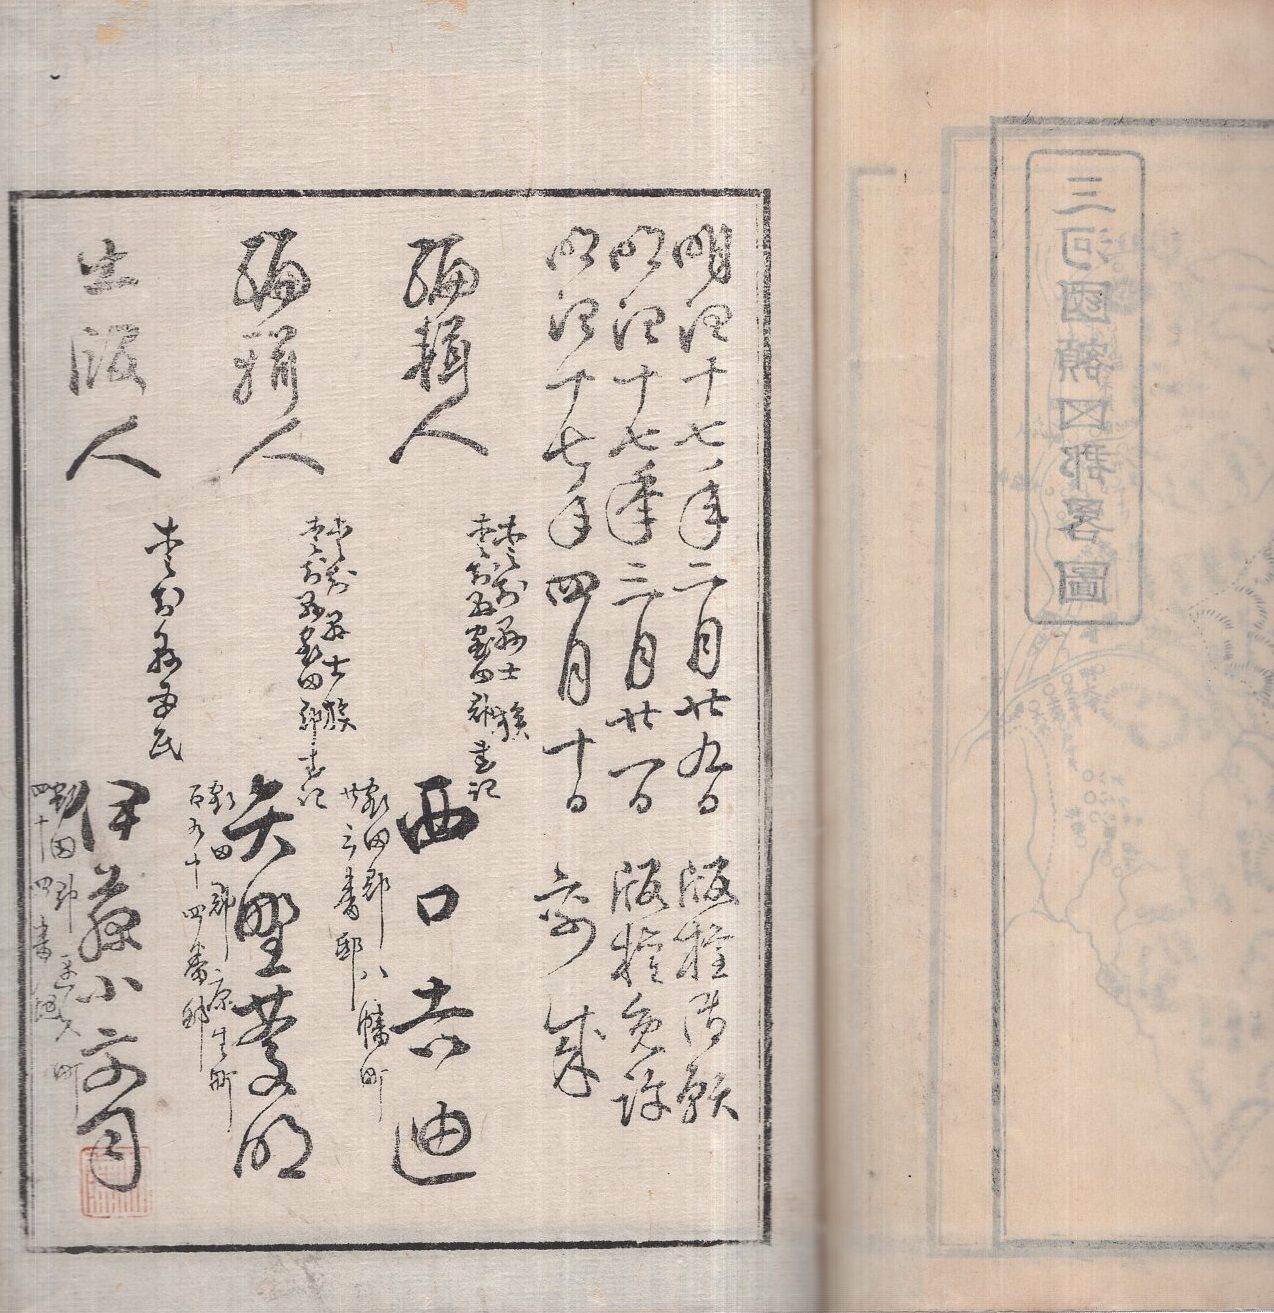 三河國
郡畧圖
明治十七年二月廿九日 版権御願
明治十七年三月廿一日 版権免許
明治十七年四月十日 刻成
編輯人
愛知縣士族
愛知縣額田郡書記
西口吉迪
額田郡八幡町
廿三番邸
編輯人
愛知縣士族
愛知縣額田郡書記
矢野 明
額田郡康生町
百九十四番邸
出版人
愛知縣平民
伊藤小文司
額田郡連尺町
四十四番邸